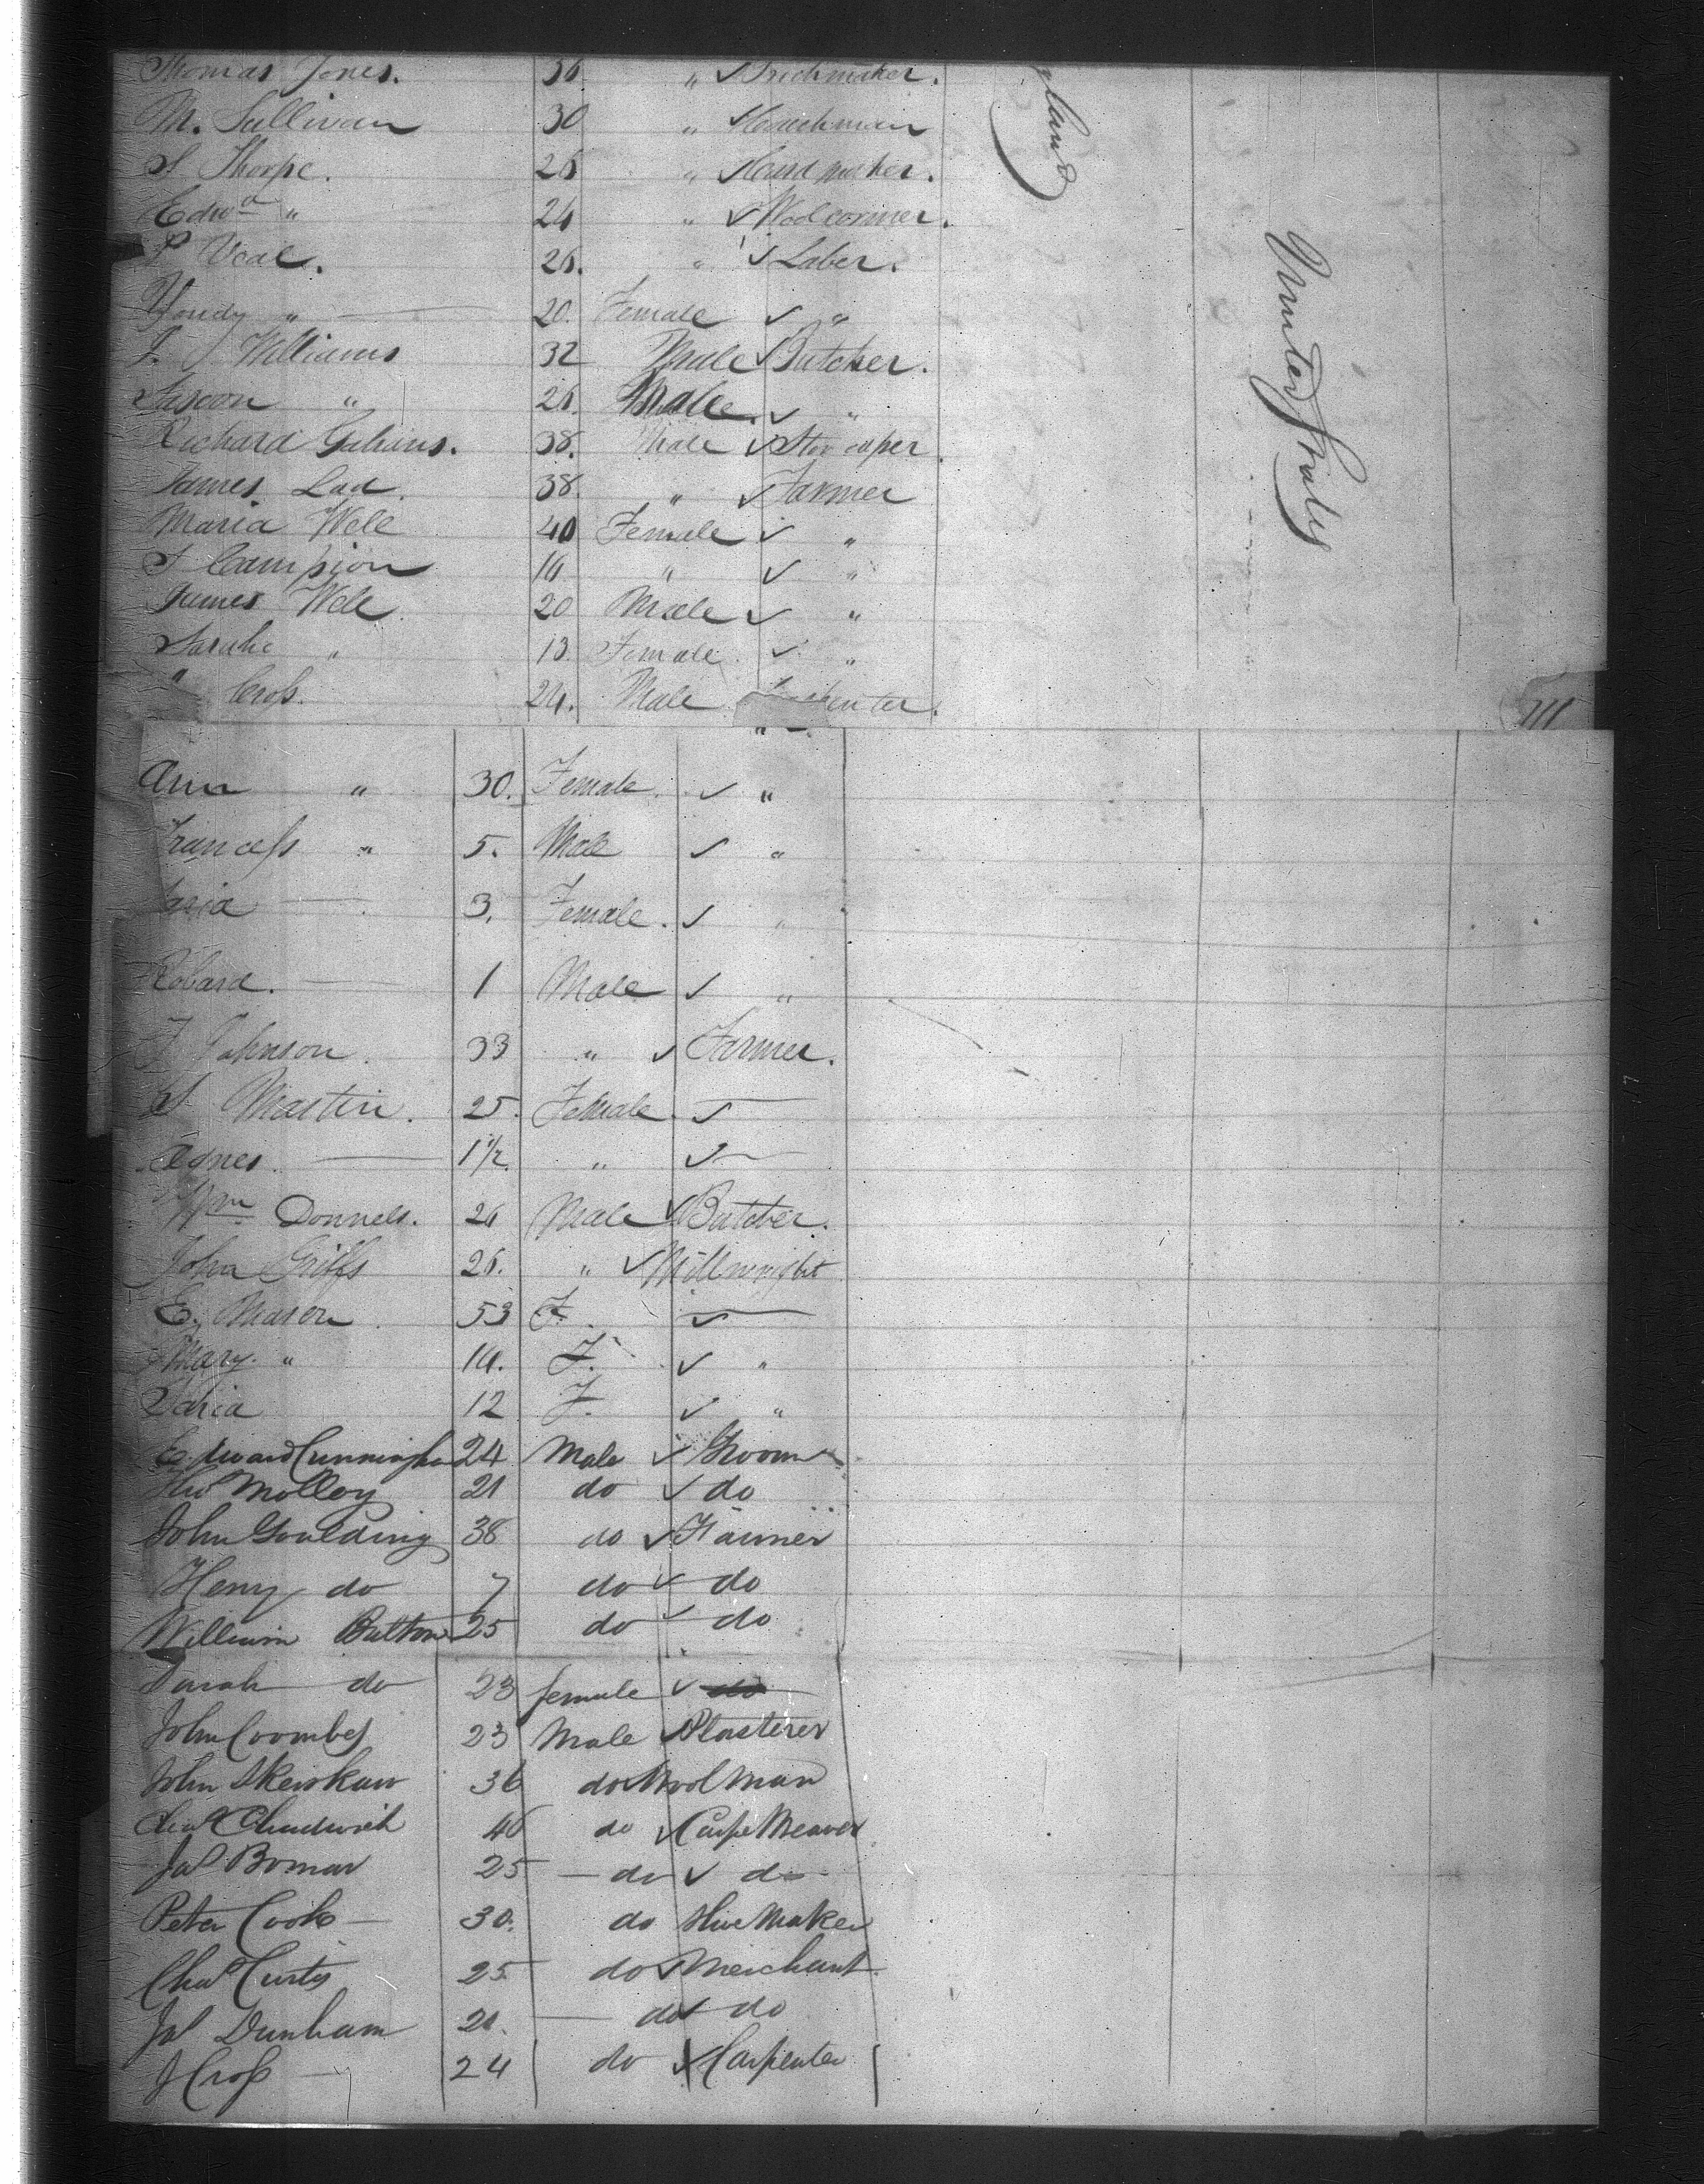 Thomas Jones. 36 " ✓ Brickmaker.
M. Sullivan 30 " ✓ Coachman
S Thorpe. 26 " ✓ Card maker.
Edwd " 24 " ✓
Veal. 26. " ✓ Laber.
" — 20. Female ✓ "
Williams 32 Male ✓ Butcher.
" 26. Male. ✓ "
Richard 38. Male ✓
James Lad. 38. " ✓ Farmer
Maria Well 40 Female ✓ "
Campion " ✓ "
James Well. 20 Male ✓ "
Sarahe " 13. Female. ✓ "
" Croß. 24. Male enter.
gland
United States
Ann " 30. Female. ✓ "
Franceß " 5. Male ✓ "
— 3. Female. ✓ "
Robard. — 1 Male ✓ "
Johnson. 33 " ✓ Farmer.
S Martin. 25. Female. ✓ —
Agnes. — 1 1/2. " ✓ —
Wm Donnels. 26 Male ✓ Butcher.
John Griffs 26. " ✓ Millwright
E. Mason. 53 F. ✓ —
Mary. " 14. F. ✓ "
12 F. ✓ "
Edward Cunningham 24 Male ✓ Groom
Molloy 21 do ✓ do
John Goulding 38 do ✓ Farmer
Heny do 7 do ✓ do
William Bulton 25 do ✓ do
Sarah do 23 female ✓ do
John Coombes 23 Male ✓ Plasterer
John 36 do ✓ Wool man
Chadwick 46 do ✓ Carpe Weaver
Jas Bomar 25 — do ✓ do
Peter Cook — 30. do Shoe Maker
Chas Curtis 25 do ✓ Merchant.
Jas Dunham 21. — do ✓ do
J Croß — 24 do ✓ Carpenter